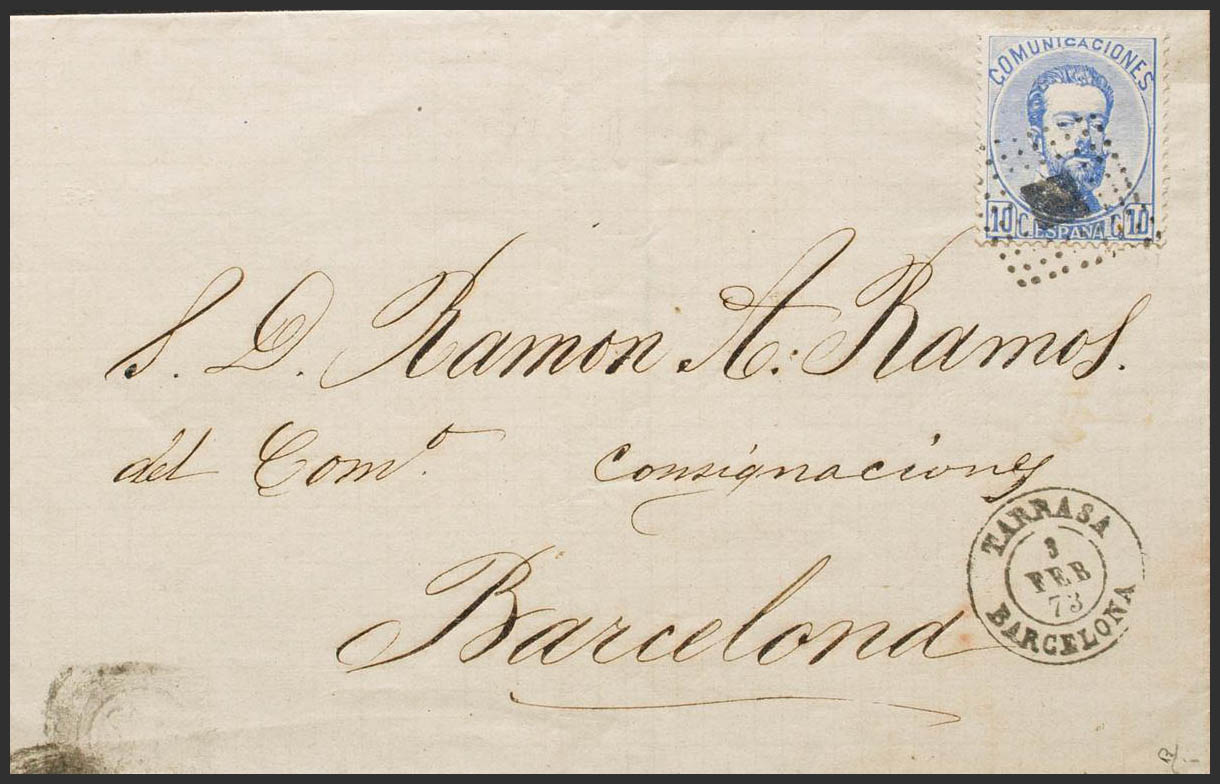 COMUNICACIONES
10 C. ESPAÑA C. 10
S. D. Ramon A: Ramos.
del Com.º consignaciones
Barcelona
TARRASA
3
FEB
73
BARCELONA